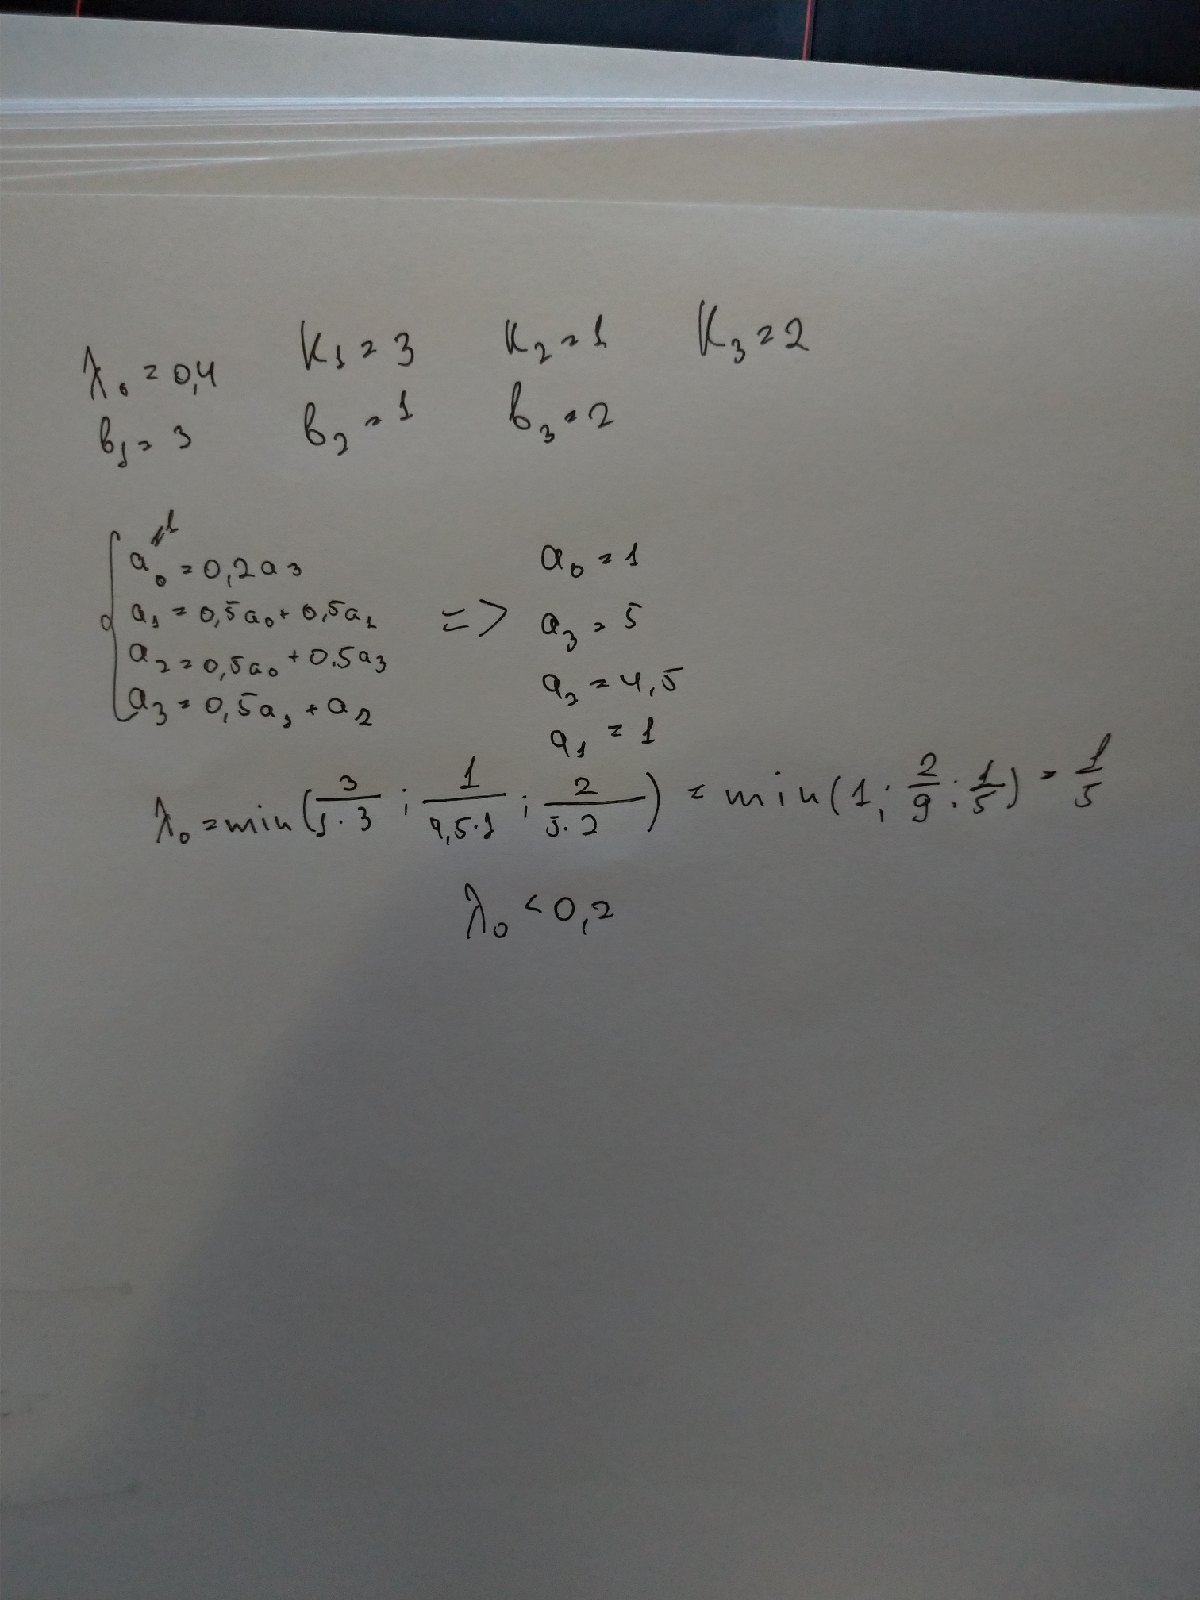 λ₀ = 0,4 K₁ = 3 K₂ = 1 K₃ = 2
b₁ = 3 b₂ = 1 b₃ = 2
=1
a₀ = 0,2a₃ a₀ = 1
a₁ = 0,5a₀ + 0,5a₁ => a₃ = 5
a₂ = 0,5a₀ + 0.5a₃ a₂ = 4,5
a₃ = 0,5a₁ + a₂ a₁ = 1
λ₀ = min(3/(1·3) ; 1/(4,5·1) ; 2/(5·2)) = min(1; 2/9; 1/5) = 1/5
λ₀ < 0,2